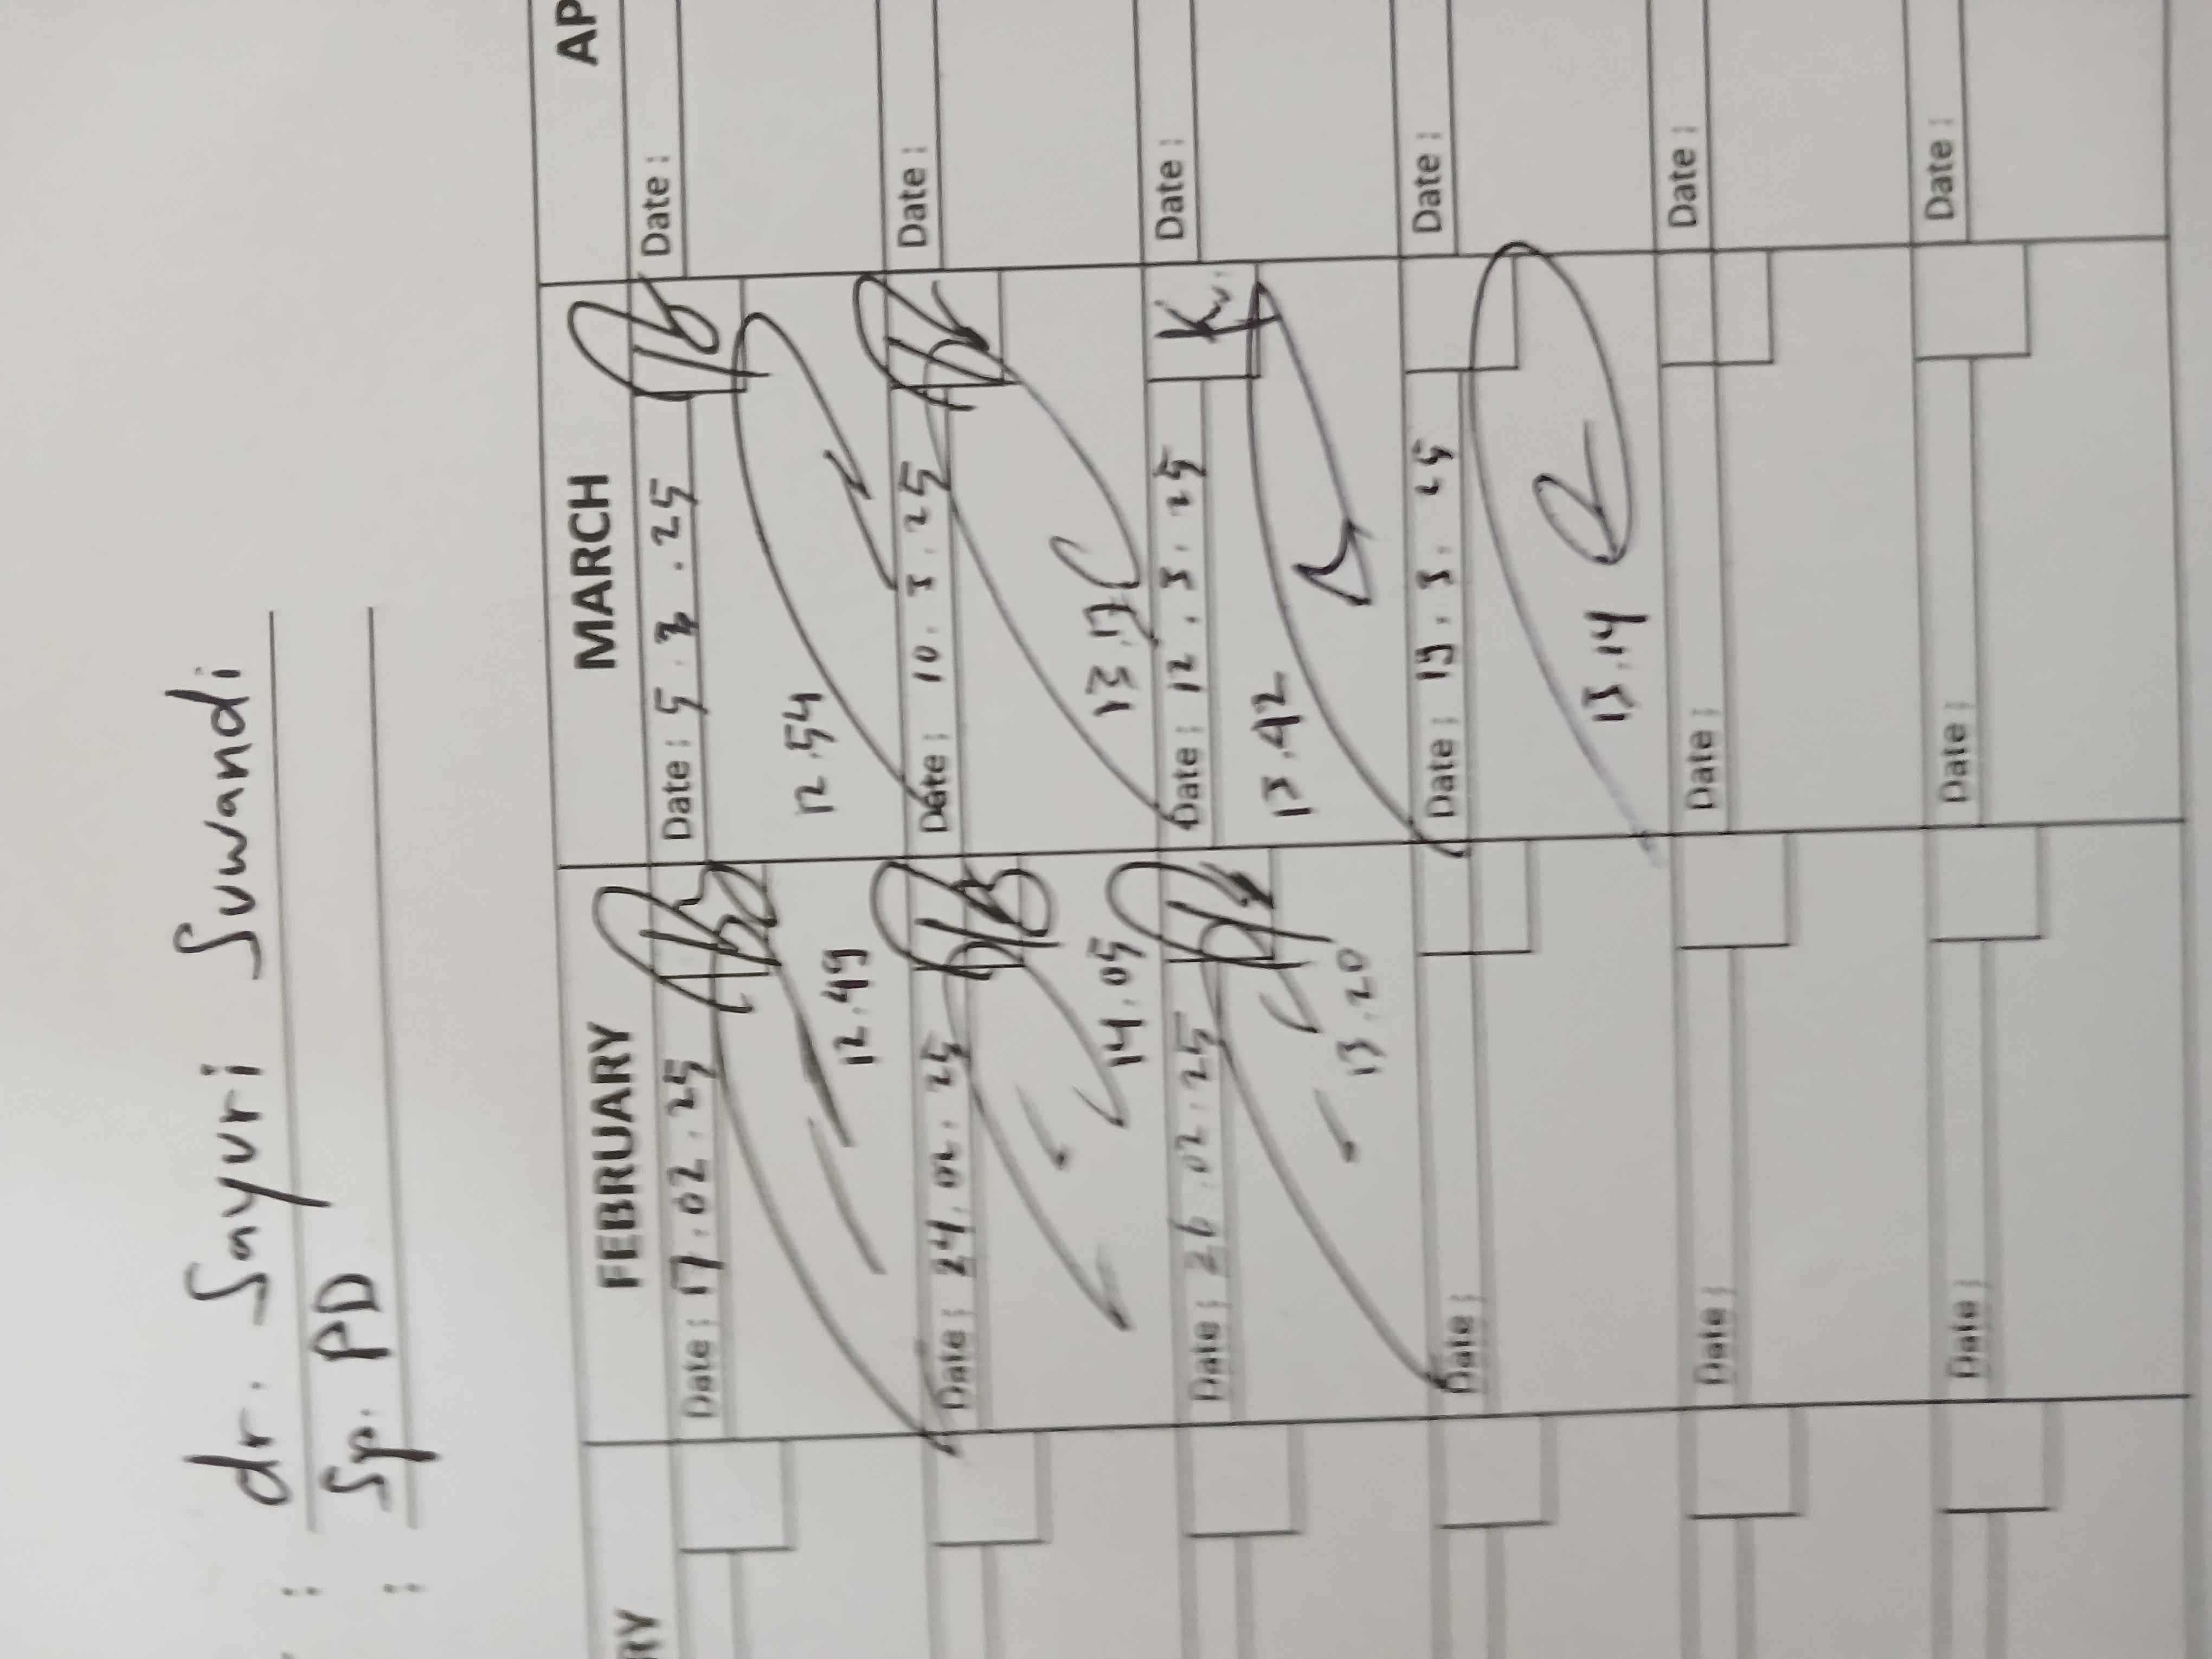 : dr. Sayuri Suwandi
: Sp. PD
RY FEBRUARY MARCH AP
Date : 17.02.25 Date : 5.3.25 Date :
12.49 12.54
Date : 24.02.25 Date : 10.3.25 Date :
14.05 13.17
Date : 26.02.25 Date : 12.3.25 Date :
13.20 13.42
Date : Date : 19.3.25 Date :
13.14
Date : Date : Date :
Date : Date : Date :